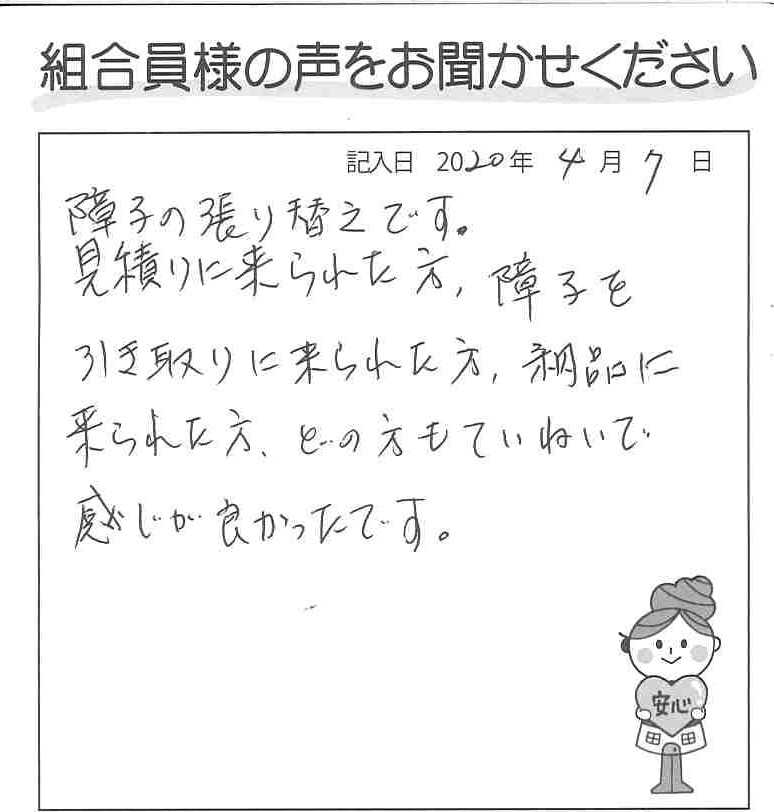 組合員様の声をお聞かせください
記入日 2020年 4月 7日
障子の張り替えです。
見積りに来られた方, 障子を
引き取りに来られた方, 納品に
来られた方、どの方もていねいで
感じが良かったです。
安心